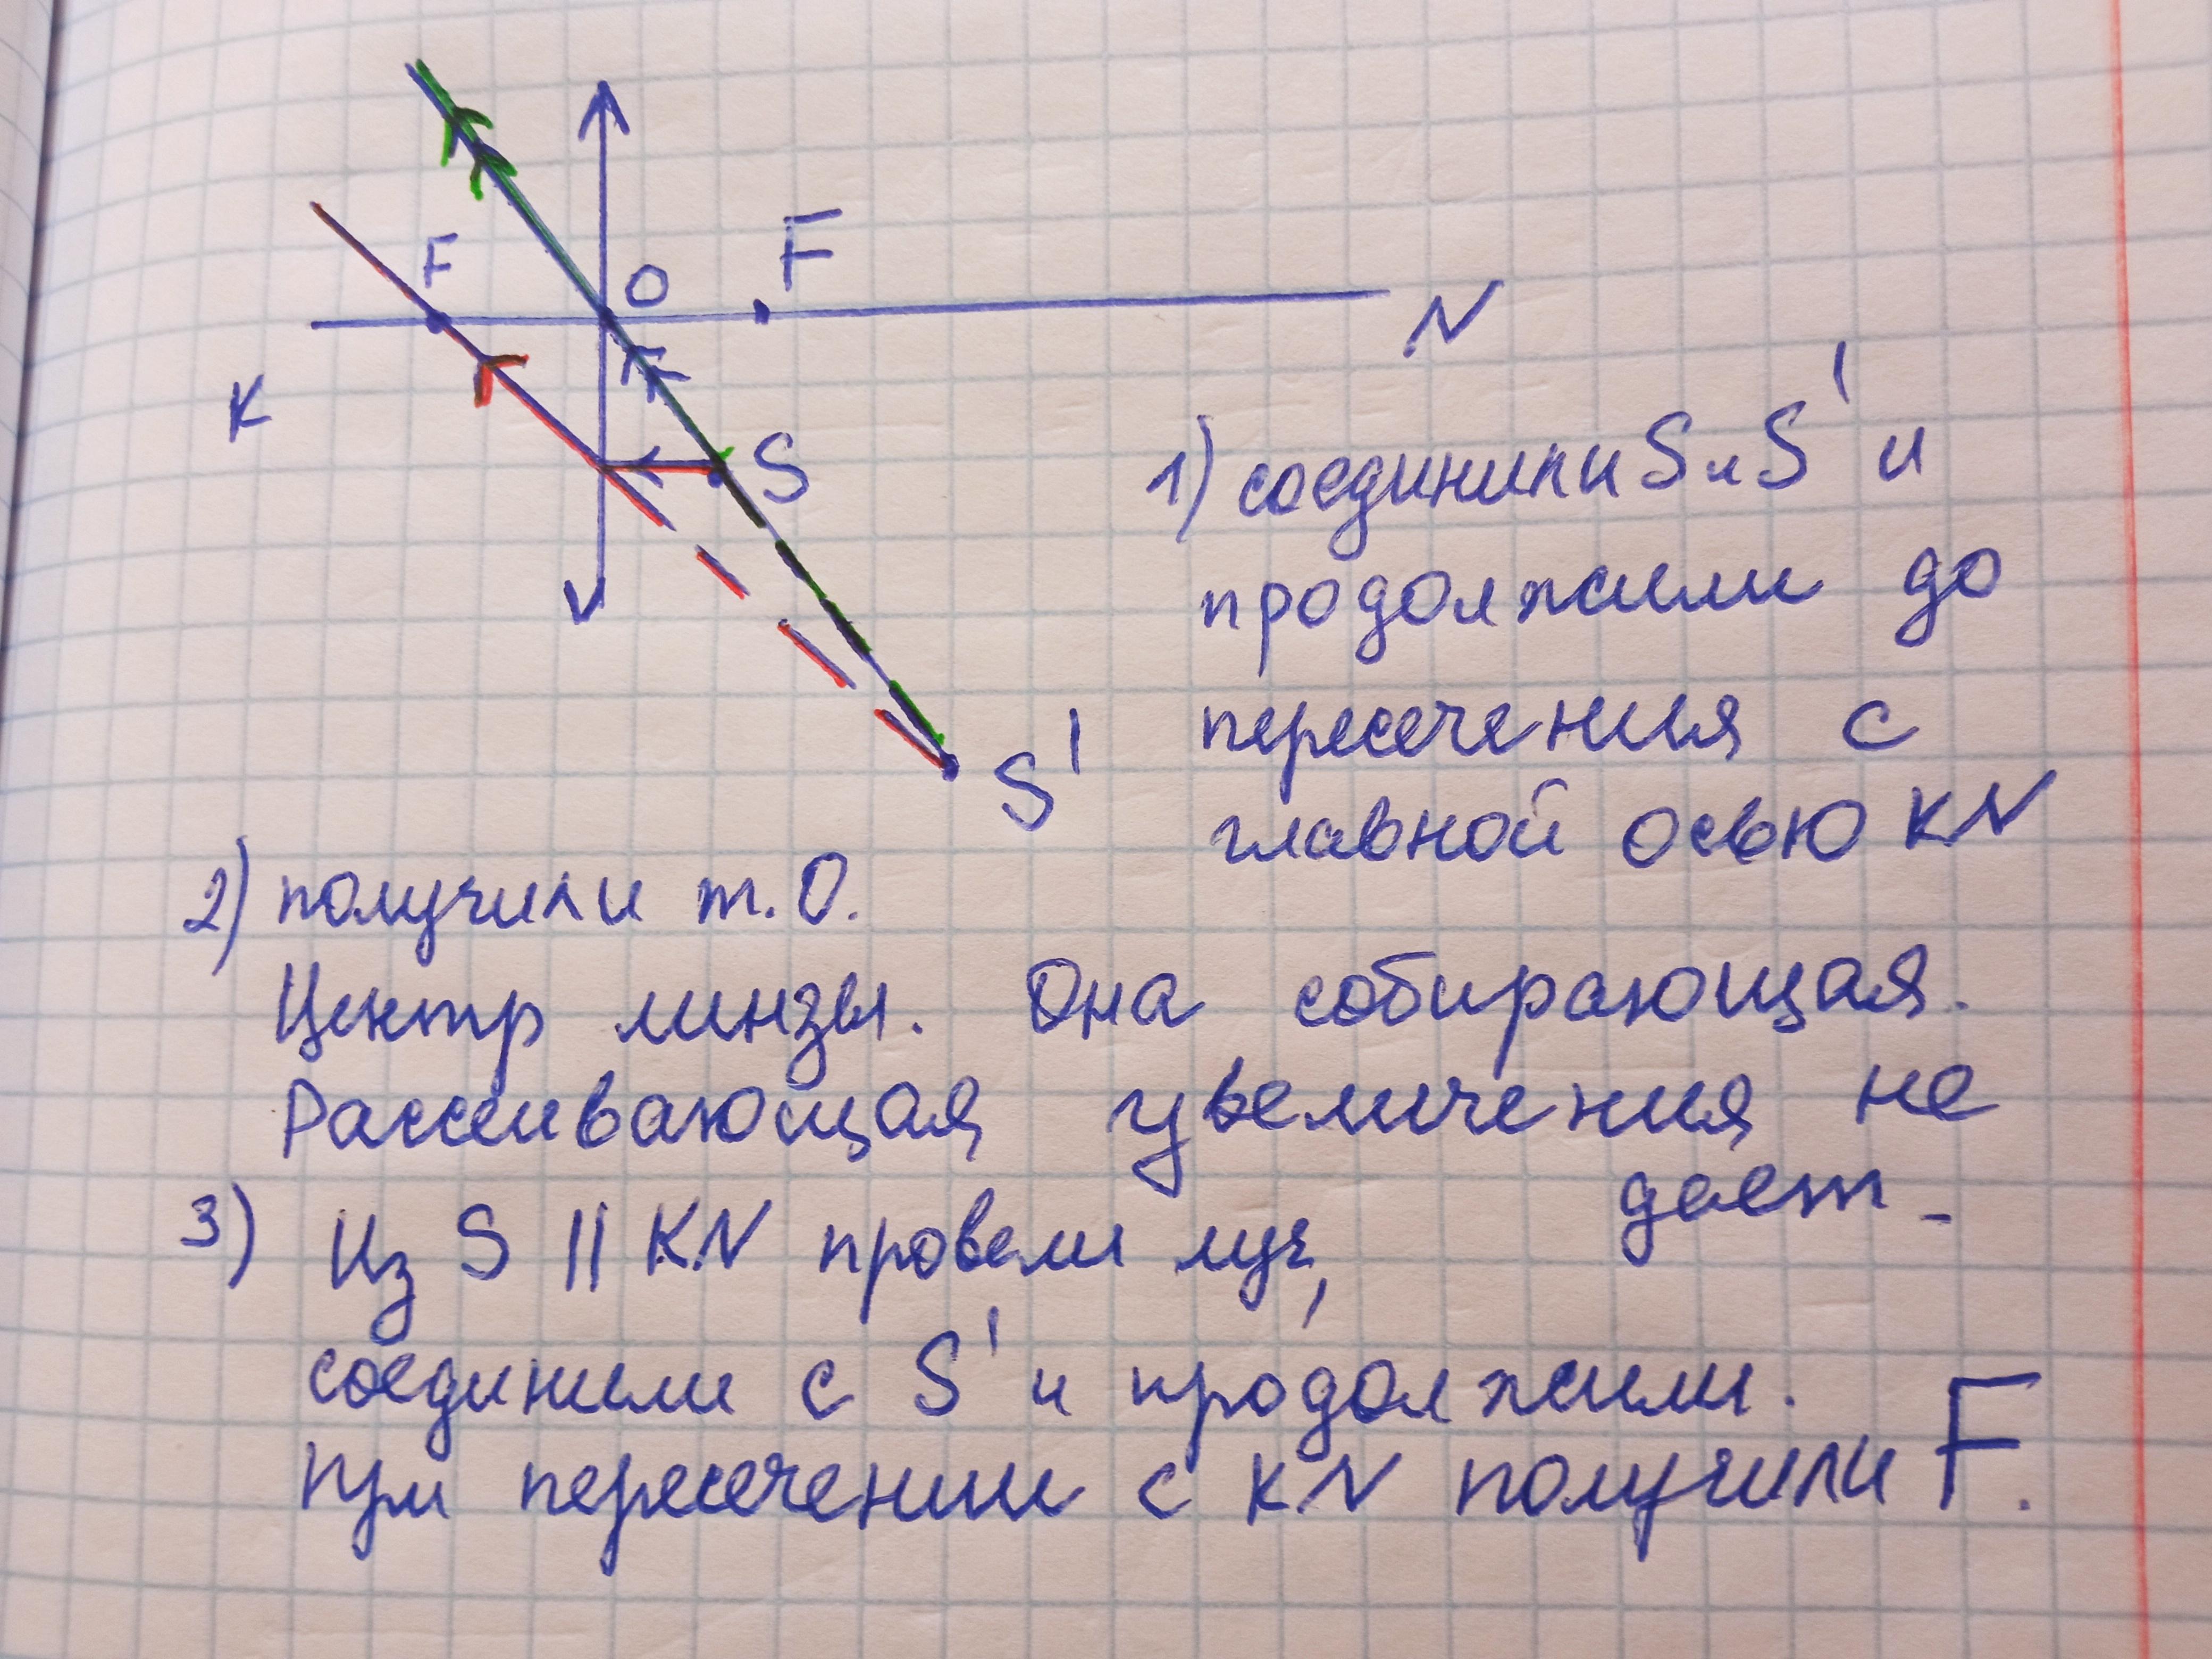 F
O
F
N
K
S
S'
1) соединили S и S' и
продолжили до
пересечения с
главной осью KN
2) получили т. О.
Центр линзы. Она собирающая.
Рассеивающая увеличения не
дает.
3) Из S || KN провели луч,
соединили с S' и продолжили.
При пересечении с KN получили F.